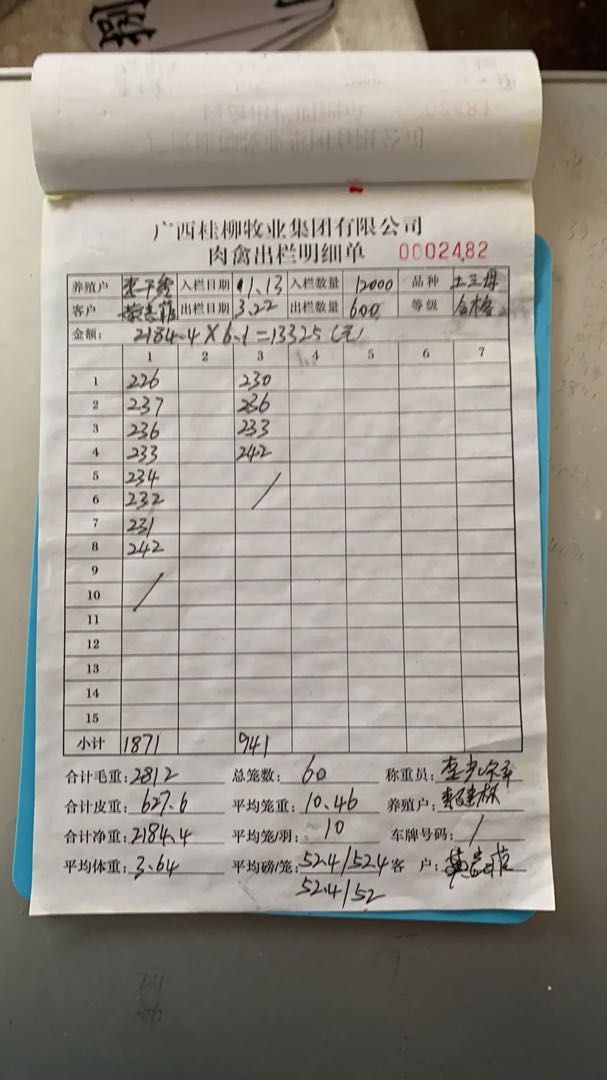 捌
广西桂柳牧业集团有限公司
肉禽出栏明细单 0002482
养殖户 入栏日期 11.13 入栏数量 12000 品种 土三母
客户 出栏日期 3.22 出栏数量 600 等级 合格
金额: 2184.4×6.1=13325(元)
1 2 3 4 5 6 7
1 226 230
2 237 236
3 236 233
4 233 242
5 234
6 232 /
7 231
8 242
9
10 /
11
12
13
14
15
小计 1871 941
合计毛重: 2812 总笼数: 60 称重员:
合计皮重: 627.6 平均笼重: 10.46 养殖户:
合计净重: 2184.4 平均笼/羽: 10 车牌号码: /
平均体重: 3.64 平均磅/笼: 52.4/52.4 客 户:
52.4/52